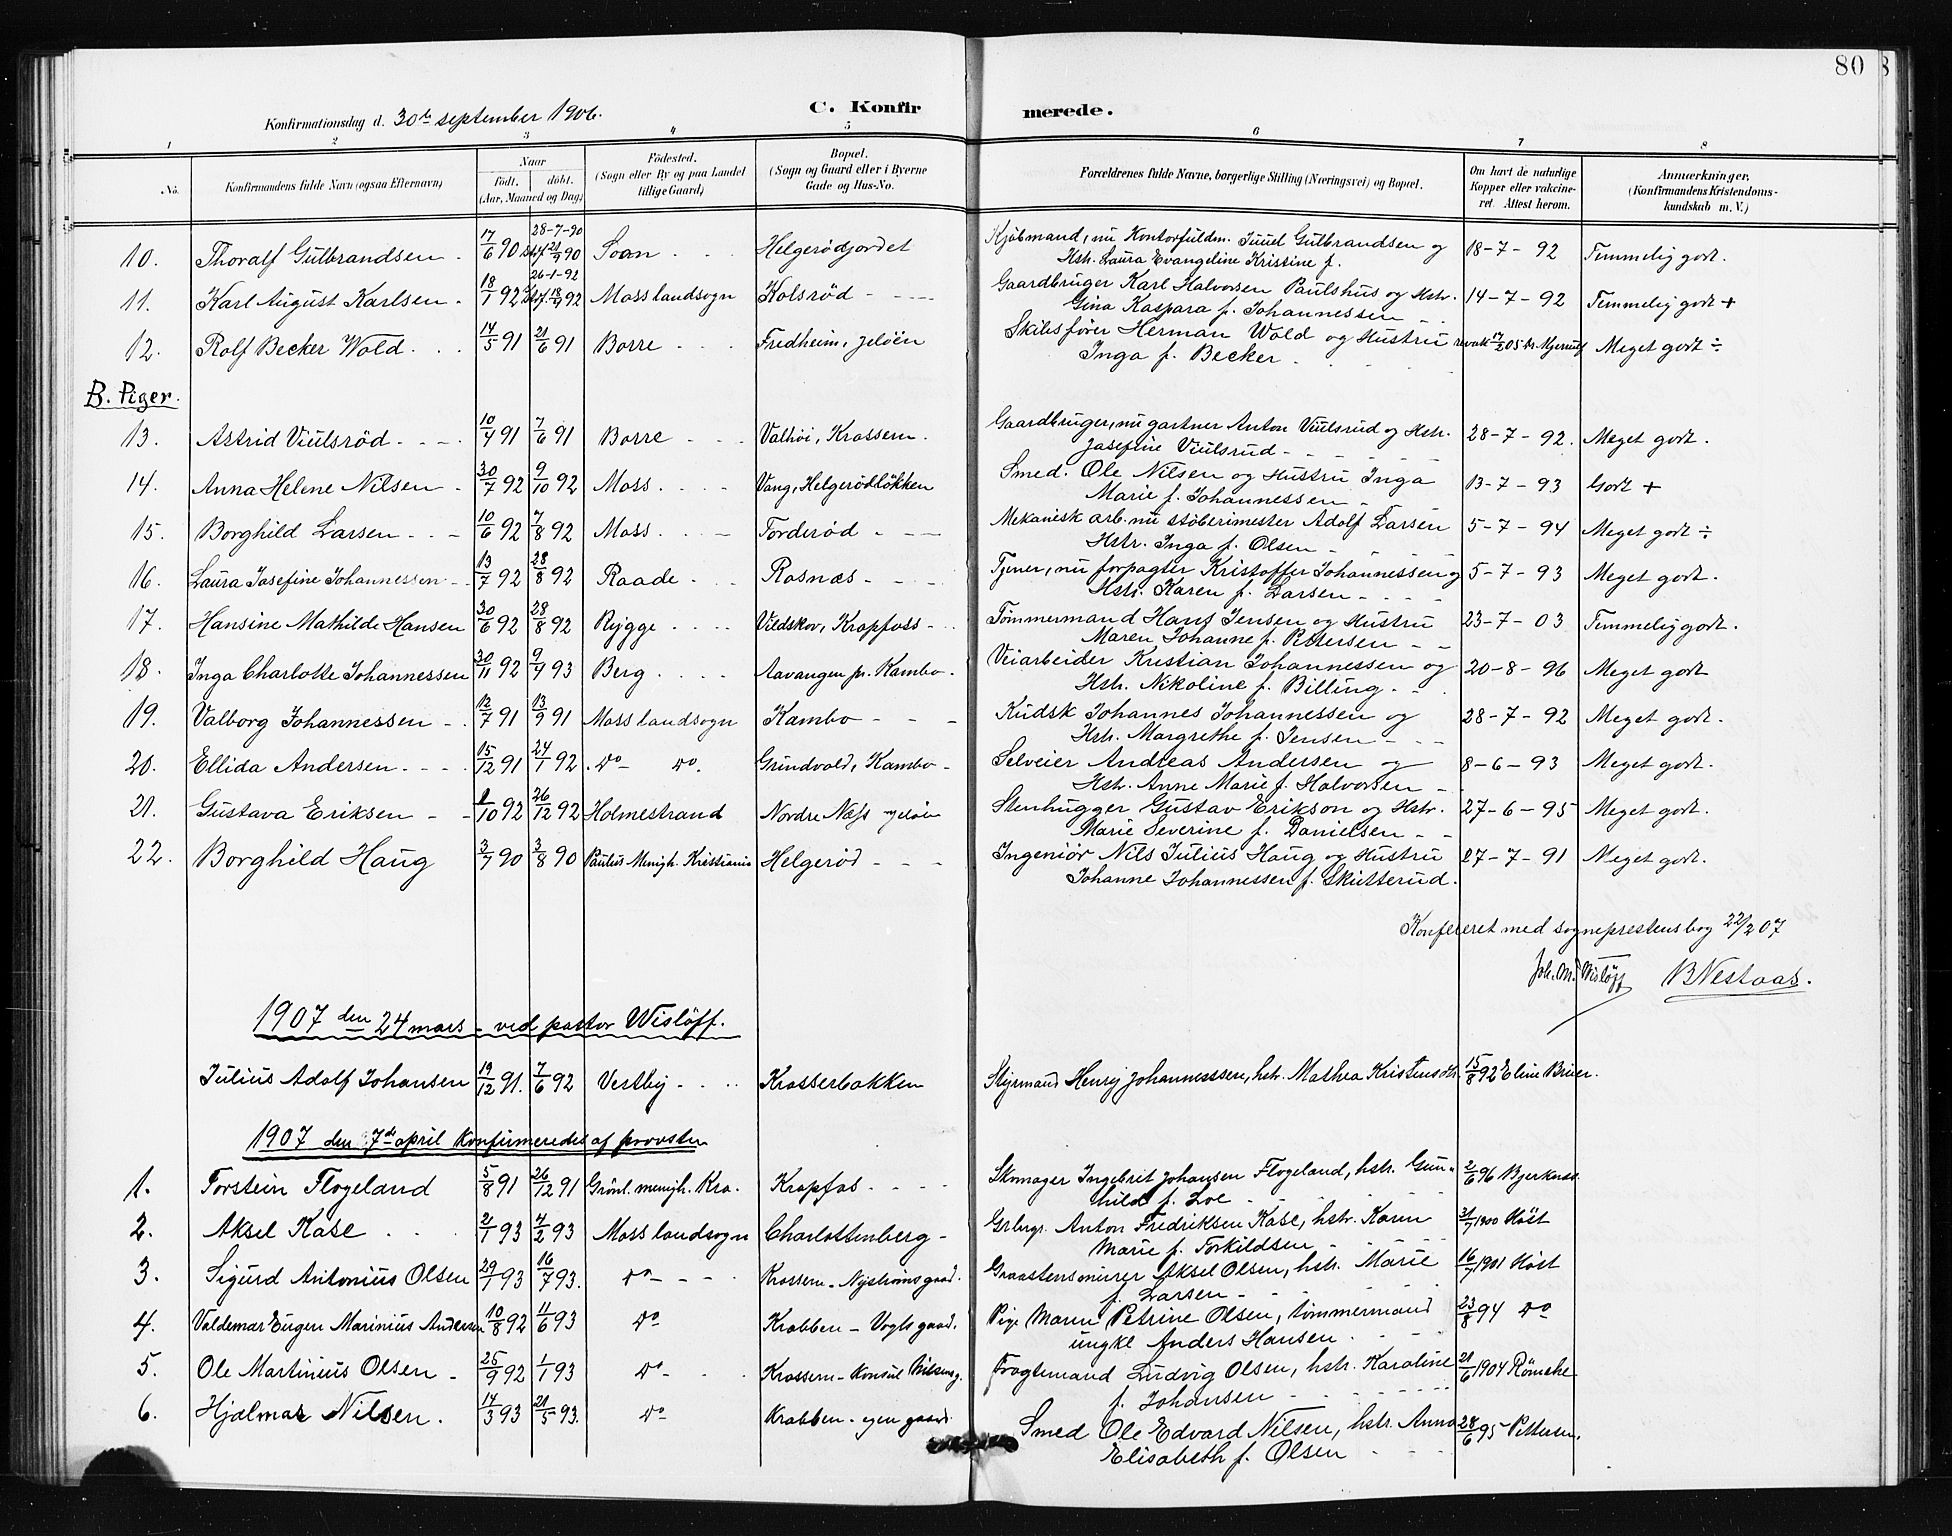 80
Konfirmationsdag d. 30te september 1906.
C. Konfirmerede.
1 2 3 4 5 6 7 8
No. Konfirmandens fulde Navn (ogsaa Efternavn) Naar født. døbt. (Aar, Maaned og Dag) Fødested. (Sogn eller By og paa Landet tillige Gaard) Bopæl. (Sogn og Gaard eller i Byerne Gade og Hus-No. Forældrenes fulde Navne, borgerlige Stilling (Næringsvei) og Bopæl. Om havt de naturlige Kopper eller vakcineret. Attest herom. Anmærkninger, (Konfirmandens Kristendomskundskab m. V.)
10. Thoralf Gulbrandsen 17/6 90 28-7-90 Soon Helgerødjordet Kjøbmand, nu Kontorfuldm. Juul Gulbrandsen og 18-7-92 Temmelig godt.
Hstr. Laura Evangeline Kristine f.
11. Karl August Karlsen 18/1 92 26-1-92 Moss landsogn Kolsrød Gaardbruger Karl Halvorsen Paulshus og Hstr. 14-7-92 Temmelig godt +
Gina Kaspara f. Johannessen
12. Rolf Becker Wold 14/5 91 21/6 91 Borre Fredheim, Jeløen Skibsfører Herman Wold og Hustru Meget godt ÷
Inga f. Becker
B. Piger.
13. Astrid Viulsrød 10/4 91 7/6 91 Borre Valhøi, Krossern. Gaardbruger, nu gartner Anton Viulsrud og Hstr. 28-7-92. Meget godt.
Josefine Viulsrud
14. Anna Helene Nilsen 30/7 92 9/10 92 Moss Vang, Helgerødløkken Smed. Ole Nilsen og Hustru Inga 13-7-93 Godt +
Marie f. Johannessen
15. Borghild Larsen 10/6 92 7/8 92 Moss Torderød Mekanisk arb. nu støberimester Adolf Larsen 5-7-94 Meget godt ÷
Hstr. Inga f. Olsen
16. Laura Josefine Johannessen 13/7 92 28/8 92 Raade Rosnæs Tjener, nu forpagter Kristoffer Johannessen og 5-7-93 Meget godt.
Hstr. Karen f. Larsen
17. Hansine Mathilde Hansen 30/6 92 28/8 92 Rygge Vildskov, Kropfoss Tømmermand Hans Jensen og Hustru 23-7-03 Temmelig godt.
Maren Johanne f. Pettersen
18. Inga Charlotte Johannessen 30/11 92 9/4 93 Berg Aavangen pr. Kambo Veiarbeider Kristian Johannessen og 20-8-96 Meget godt
Hstr. Nikoline f. Billing
19. Valborg Johannessen 12/7 91 13/9 91 Moss landsogn Kambo Kudsk Johannes Johannessen og 28-7-92 Meget godt.
Hstr. Margrethe f. Jensen
20. Ellida Andersen 15/12 91 24/1 92 do do. Grindvold, Kambo Selveier Andreas Andersen og 8-6-93 Meget godt.
Hstr. Anne Marie f. Halvorsen
21. Gustava Eriksen 1/10 92 26/12 92 Holmestrand Nordre Næss Jeløen Stenhugger Gustav Erikson og Hstr. 27-6-95 Meget godt.
Marie Severine f. Danielsen
22. Borghild Haug 3/7 90 3/8 90 Paulus Menigh. Kristiania Helgerød Ingeniør Nils Julius Haug og Hustru 27-7-91 Meget godt.
Johanne Johannessen f. Skutterud.
Konfereret med sogneprestens bog 22/2 07
Joh. M. Wisløff BNestaas.
1907 den 24 mars - ved pastor Wisløff.
Julius Adolf Johansen 19/12 91. 7/6 92 Vestby Krosserbakken Styrmand Henry Johannessen, hstr. Mathea Kristensdtr. 15/8 92 Eline Brier.
1907 den 7de april konfirmeredes af provsten
1. Torstein Flogeland 5/8 91 26/12 91 Grønl. menigh. Kra. Kropfos Skomager Ingebrit Johansen Flogeland, hstr. Gun- 2/6 96
hild f. Loe
2. Aksel Kase 2/1 93 4/2 93 Moss landsogn Charlottenberg Grbrgr. Anton Fredriksen Kase, hstr. Karen 31/7 1900 Høst
Marie f. Torkildsen
3. Sigurd Antonius Olsen 29/1 93 16/7 93. do Krossern - Nystrømsgaard. Graastensmurer Aksel Olsen, hstr. Marie 16/7 1901 Høst
f. Larsen
4. Valdemar Eugen Marinius Andersen 10/8 92 11/6 93 do Krabben - Vogtsgaard. Pige Maren Petrine Olsen, tømmermand 23/8 94 do
ungkl Anders Hansen
5. Ole Martinius Olsen 25/9 92 1/1 93 do Krossern - Konsul Nilsens g. Fragtemand Ludvig Olsen, hstr. Karoline 21/6 1904 Rømcke
f. Johansen
6. Hjalmar Nilsen. 14/3 93 21/5 93. do Krabben - egen gaard Smed Ole Edvard Nilsen, hstr. Anna 28/6 95 Pettersen.
Elisabeth f. Olsen